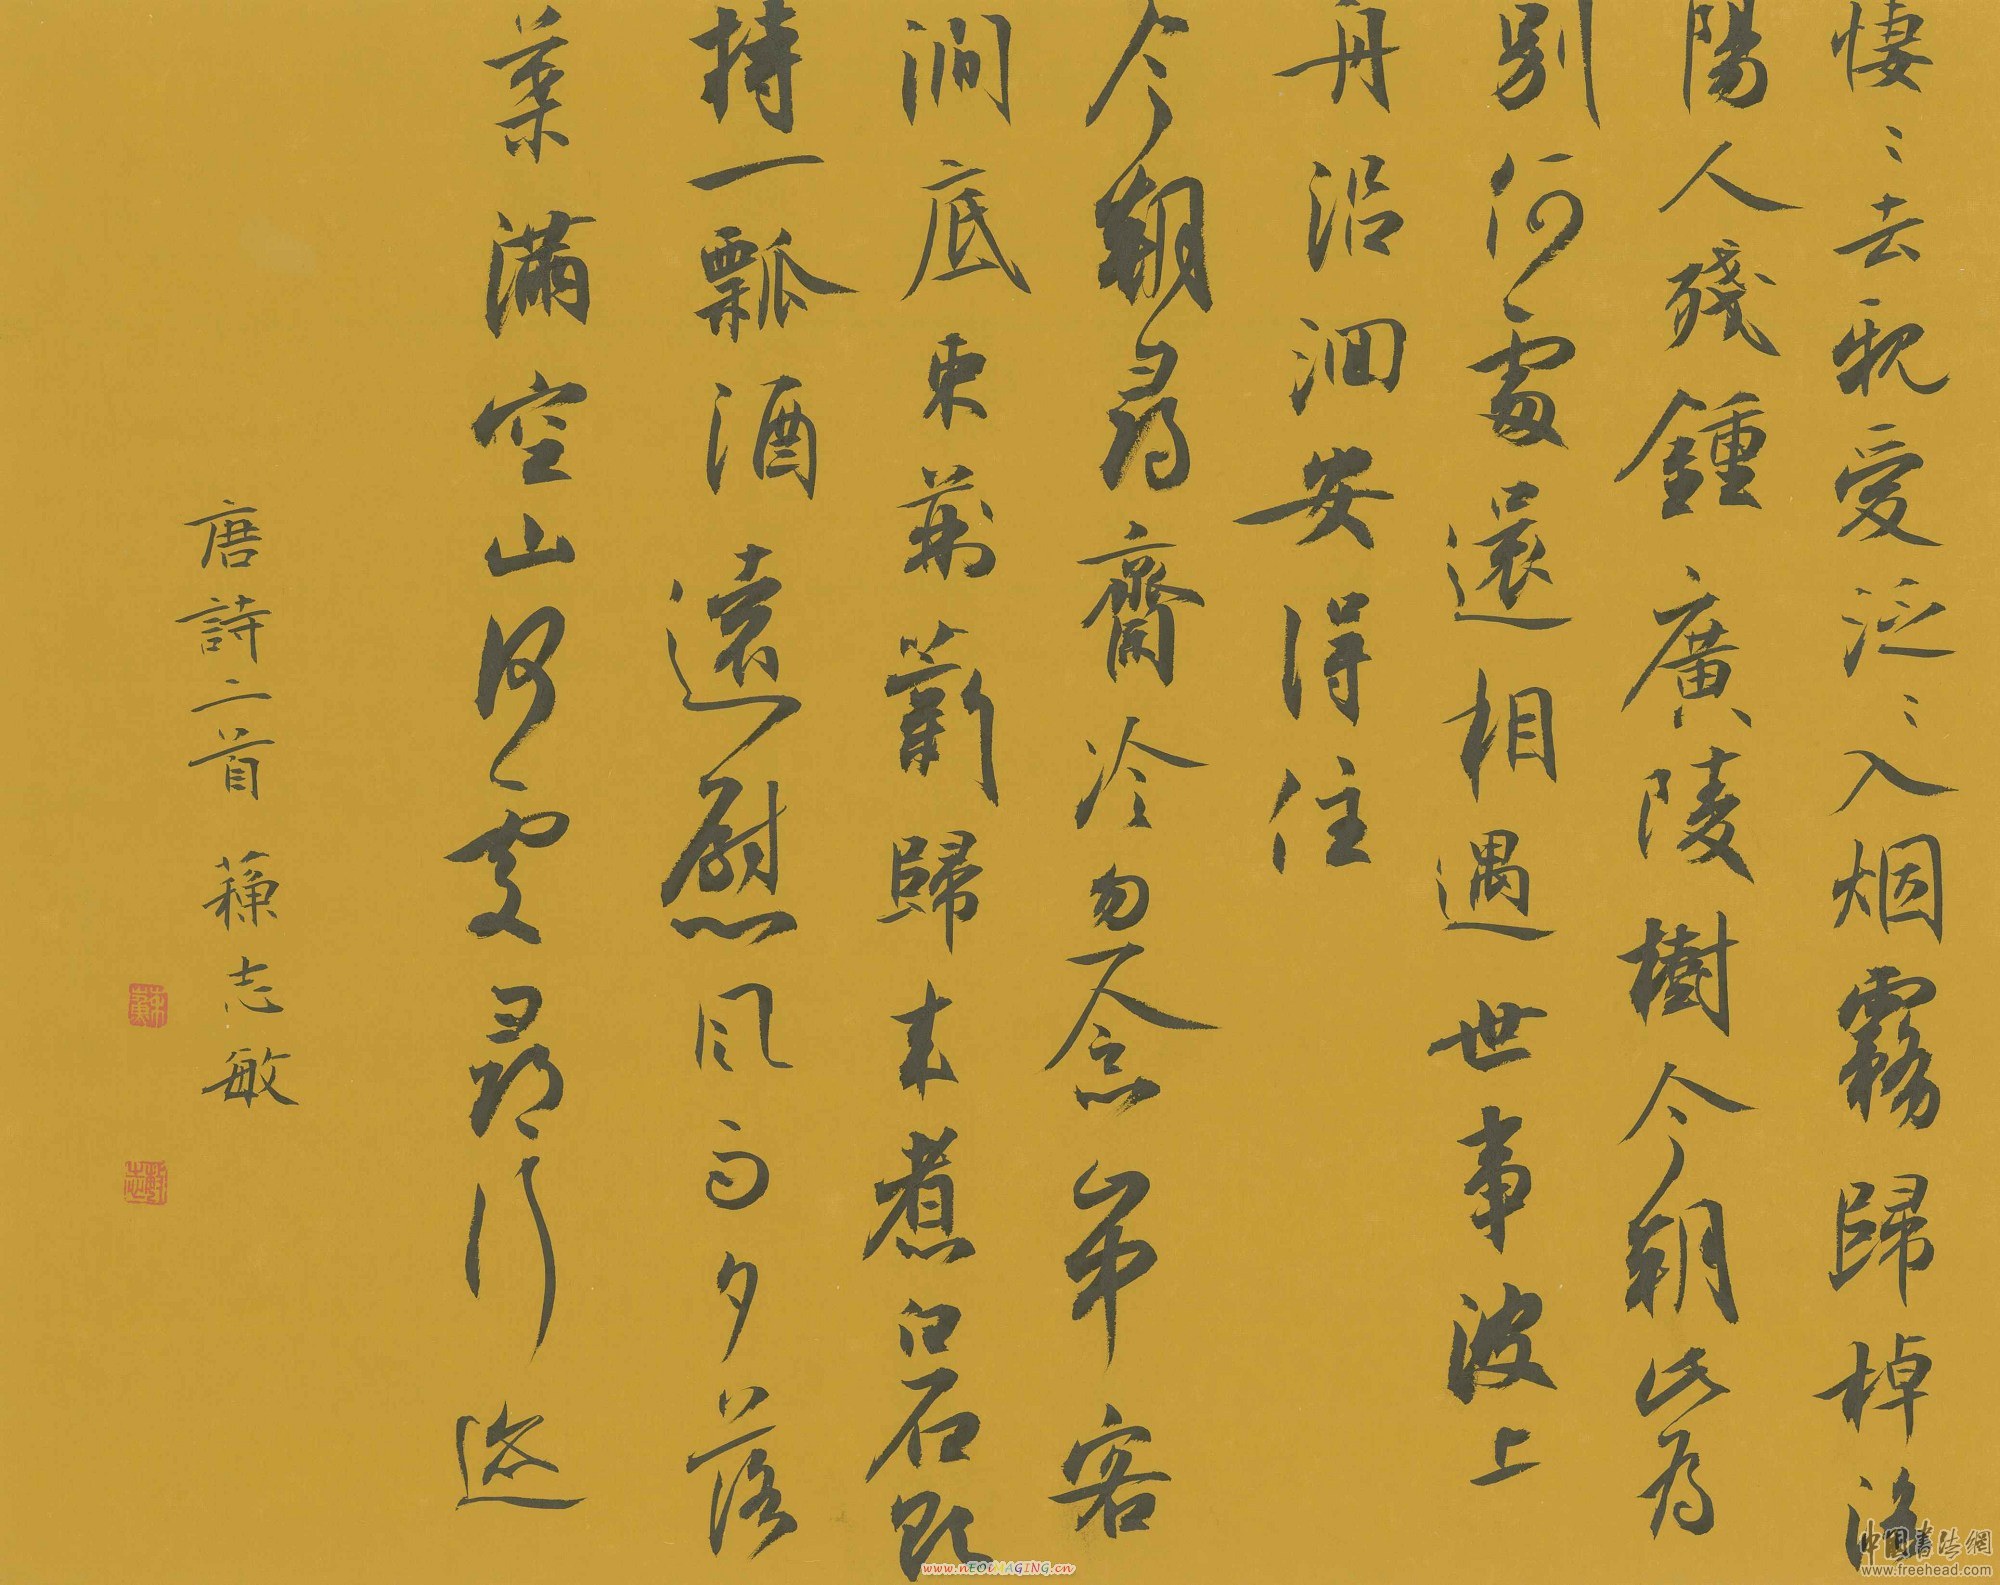 悽〻去親愛泛〻入烟霧歸棹洛
陽人殘鍾廣陵樹今朝此為
別何處還相遇世事波上
舟沿洄安得住
今朝尋齋冷勿念山中客
澗底東荊薪歸來煮白石欲
持一瓢酒遠慰風雨夕落
葉滿空山何處尋行迹
唐詩二首 蘇志敏
蘇
志敏
www.nEOiMAGING.cn
中國書法網
www.freehead.com